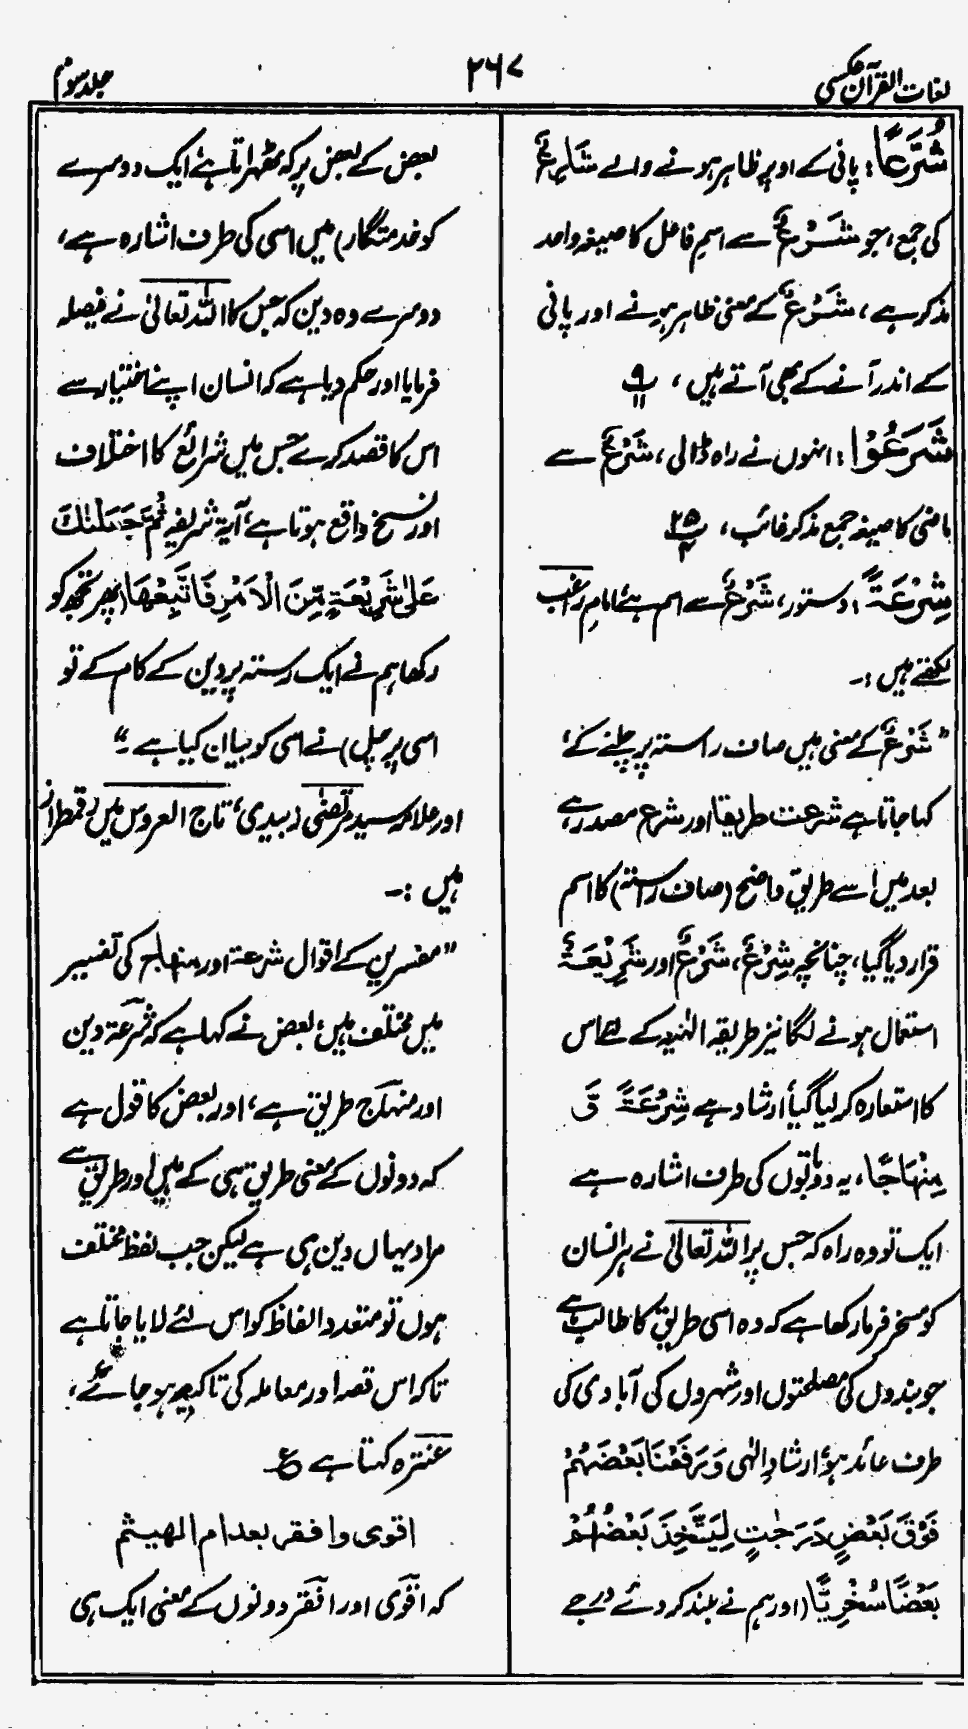 لغات القرآن عکسی
۲۶۷
جلد سوم
شُرَّعًا: پانی کے اوپر ظاہر ہونے والے شَارِعٌ
کی جمع، جو شَرْعٌ سے اسم فاعل کا صیغہ واحد
مذکر ہے، شَرْعٌ کے معنی ظاہر ہونے اور پانی
کے اندر آنے کے بھی آتے ہیں، ۹/۱۱
شَرَعُوْا: انہوں نے راہ ڈالی، شَرْعٌ سے
ماضی کا صیغہ جمع مذکر غائب، ۲۵/۴
شِرْعَةً: دستور، شَرْعٌ سے اسم ہے، امام راغب
لکھتے ہیں :۔
" شَرْعٌ کے معنی ہیں صاف راستہ پر چلنے کے،
کہا جاتا ہے شرعت طریقا اور شرع مصدر ہے
بعد میں اسے طریق واضح (صاف راستہ) کا اسم
قرار دیا گیا، چنانچہ شِرْعٌ، شَرْعٌ اور شَرِيْعَةٌ
استعمال ہونے لگا نیز طریقہ الٰہیہ کے لئے اس
کا استعارہ کر لیا گیا، ارشاد ہے شِرْعَةً وَّ
مِنْهَاجًا، یہ دو باتوں کی طرف اشارہ ہے
ایک تو وہ راہ کہ جس پر اللہ تعالیٰ نے ہر انسان
کو مسخر فرما رکھا ہے کہ وہ اسی طریق کا طالب ہے
جو بندوں کی مصلحتوں اور شہروں کی آبادی کی
طرف عائد ہو، ارشاد الٰہی وَرَفَعْنَا بَعْضَهُمْ
فَوْقَ بَعْضٍ دَرَجٰتٍ لِيَتَّخِذَ بَعْضُهُمْ
بَعْضًا سُخْرِيًّا (اور ہم نے بلند کر دئے درجے
بعض کے بعض پر کہ ٹھہراتا ہے ایک دوسرے
کو خدمتگار) میں اسی کی طرف اشارہ ہے،
دوسرے وہ دین کہ جس کا اللہ تعالیٰ نے فیصلہ
فرمایا اور حکم دیا ہے کہ انسان اپنے اختیار سے
اس کا قصد کرے جس میں شرائع کا اختلاف
اور نسخ واقع ہوتا ہے، آیۃ شریفہ ثُمَّ جَعَلْنٰكَ
عَلٰى شَرِيْعَةٍ مِّنَ الْاَمْرِ فَاتَّبِعْهَا (پھر تجھ کو
رکھا ہم نے ایک رستہ پر دین کے کام کے تو
اسی پر چل) نے اسی کو بیان کیا ہے ۔"
اور علامہ سید مرتضیٰ زبیدی، تاج العروس میں رقمطراز
ہیں :۔
" مفسرین کے اقوال شرعۃ اور منہاج کی تفسیر
میں مختلف ہیں، بعض نے کہا ہے کہ شرعۃ دین
اور منہاج طریق ہے، اور بعض کا قول ہے
کہ دونوں کے معنی طریق ہی کے ہیں اور طریق سے
مراد یہاں دین ہی ہے لیکن جب لفظ مختلف
ہوں تو متعدد الفاظ کو اس لئے لایا جاتا ہے
تاکہ اس قصہ اور معاملہ کی تاکید ہو جائے،
عنترہ کہتا ہے ع
اقوی وافقر بعد ام الهیثم
کہ اقوی اور افقر دونوں کے معنی ایک ہی